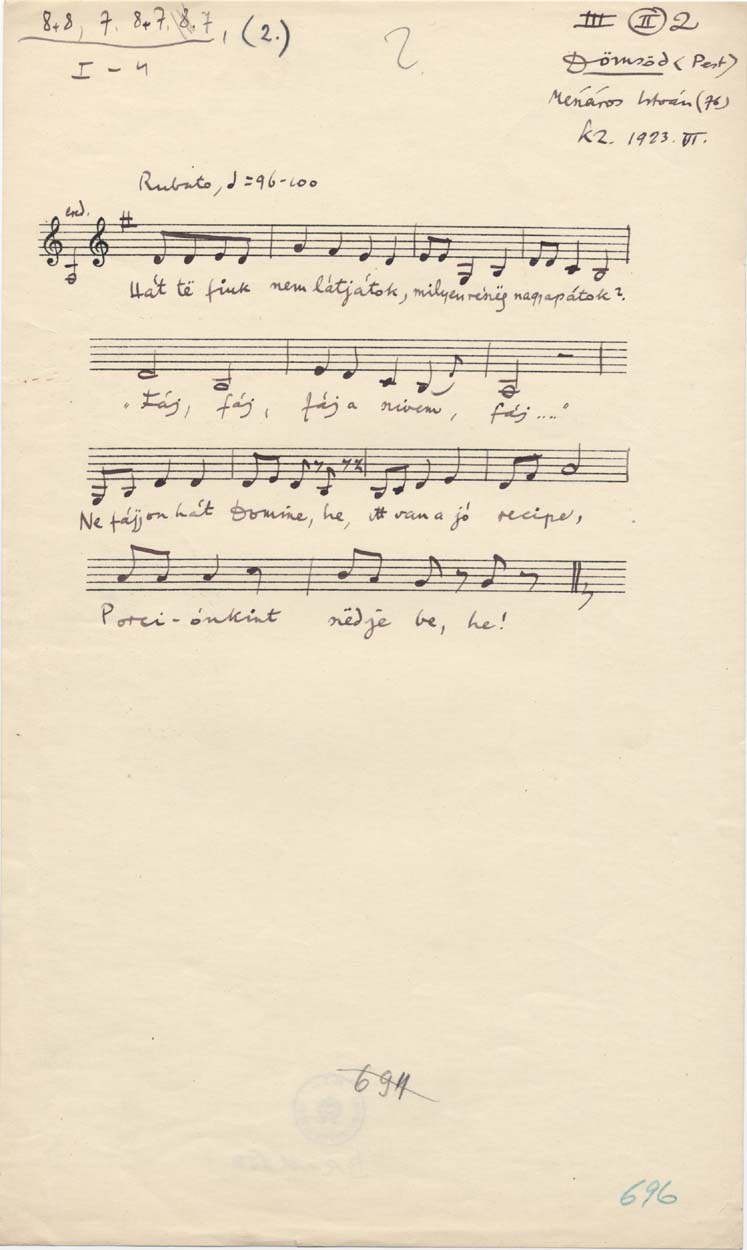 8+8, 7. 8+7. 8. 7, (2.)
I - 4
2.
III II 2
Dömsöd (Pest)
István (76)
KZ. 1923. VI.
Rubato, = 96-100
ered.
Hát të fiuk nem látjátok, milyen nagyapátok?
"Fáj, fáj, fáj a szivem, fáj...."
Ne fájjon hát Domine, he, itt van a jó recipe,
Porci-ónkint szëdje be, he!
691
696